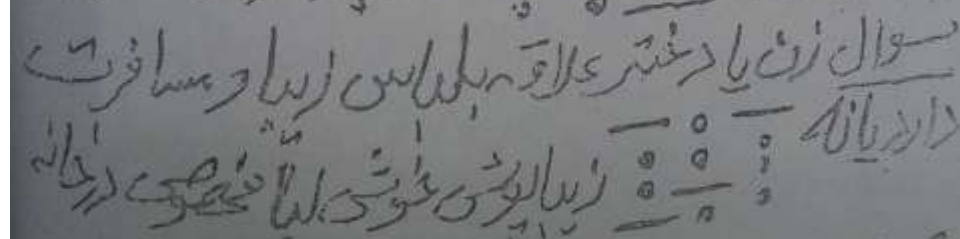 سوال زن یا دختر علاقه بلباس زیبا و مسافرت
دارد یا نه
زیباپوش خوش لباس مخصوصی در خانه